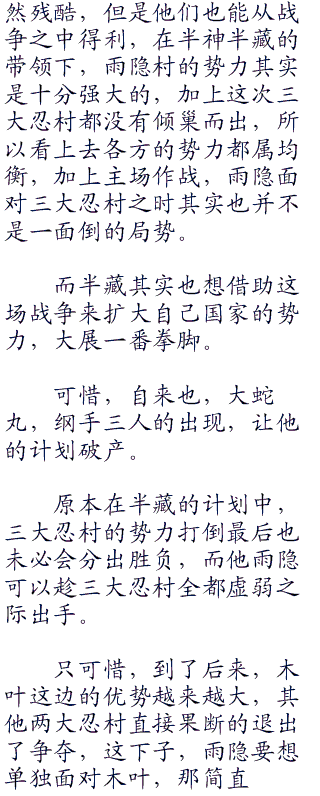 然残酷，但是他们也能从战
争之中得利，在半神半藏的
带领下，雨隐村的势力其实
是十分强大的，加上这次三
大忍村都没有倾巢而出，所
以看上去各方的势力都属均
衡，加上主场作战，雨隐面
对三大忍村之时其实也并不
是一面倒的局势。
而半藏其实也想借助这
场战争来扩大自己国家的势
力，大展一番拳脚。
可惜，自来也，大蛇
丸，纲手三人的出现，让他
的计划破产。
原本在半藏的计划中，
三大忍村的势力打倒最后也
未必会分出胜负，而他雨隐
可以趁三大忍村全都虚弱之
际出手。
只可惜，到了后来，木
叶这边的优势越来越大，其
他两大忍村直接果断的退出
了争夺，这下子，雨隐要想
单独面对木叶，那简直